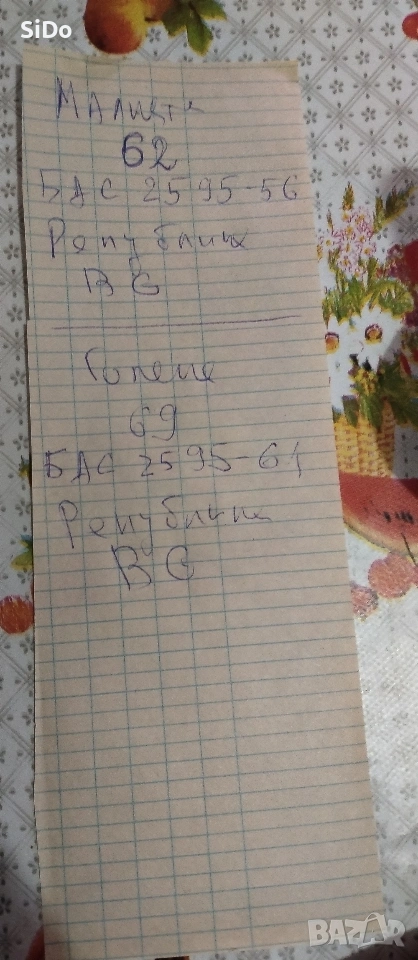 SiDo
Малката
62
БДС 2595-56
Република
ВС
Големие
69
БДС 2595-61
Република
ВС
BAZAR